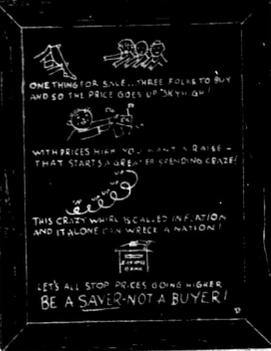 ONE THING FOR SALE...THREE FOLKS TO BUY
AND SO THE PRICE GOES UP SKYHIGH!
WITH PRICES HIGH YOU WANT A RAISE -
THAT STARTS A GREATER SPENDING CRAZE!
UP UP UP UP
THIS CRAZY WHIRL IS CALLED INFLATION
AND IT ALONE CAN WRECK A NATION!
LET'S ALL STOP PRICES GOING HIGHER
BE A SAVER-NOT A BUYER!